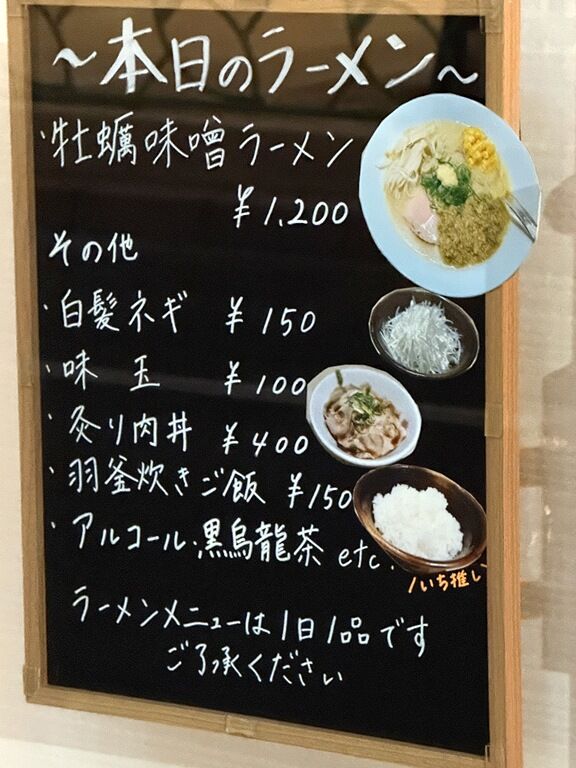 ～本日のラーメン～
・牡蠣味噌ラーメン
¥1,200
その他
・白髪ネギ ¥150
・味玉 ¥100
・炙り肉丼 ¥400
・羽釜炊きご飯 ¥150
・アルコール,黒烏龍茶 etc.
いち推し
ラーメンメニューは1日1品です
ご了承ください